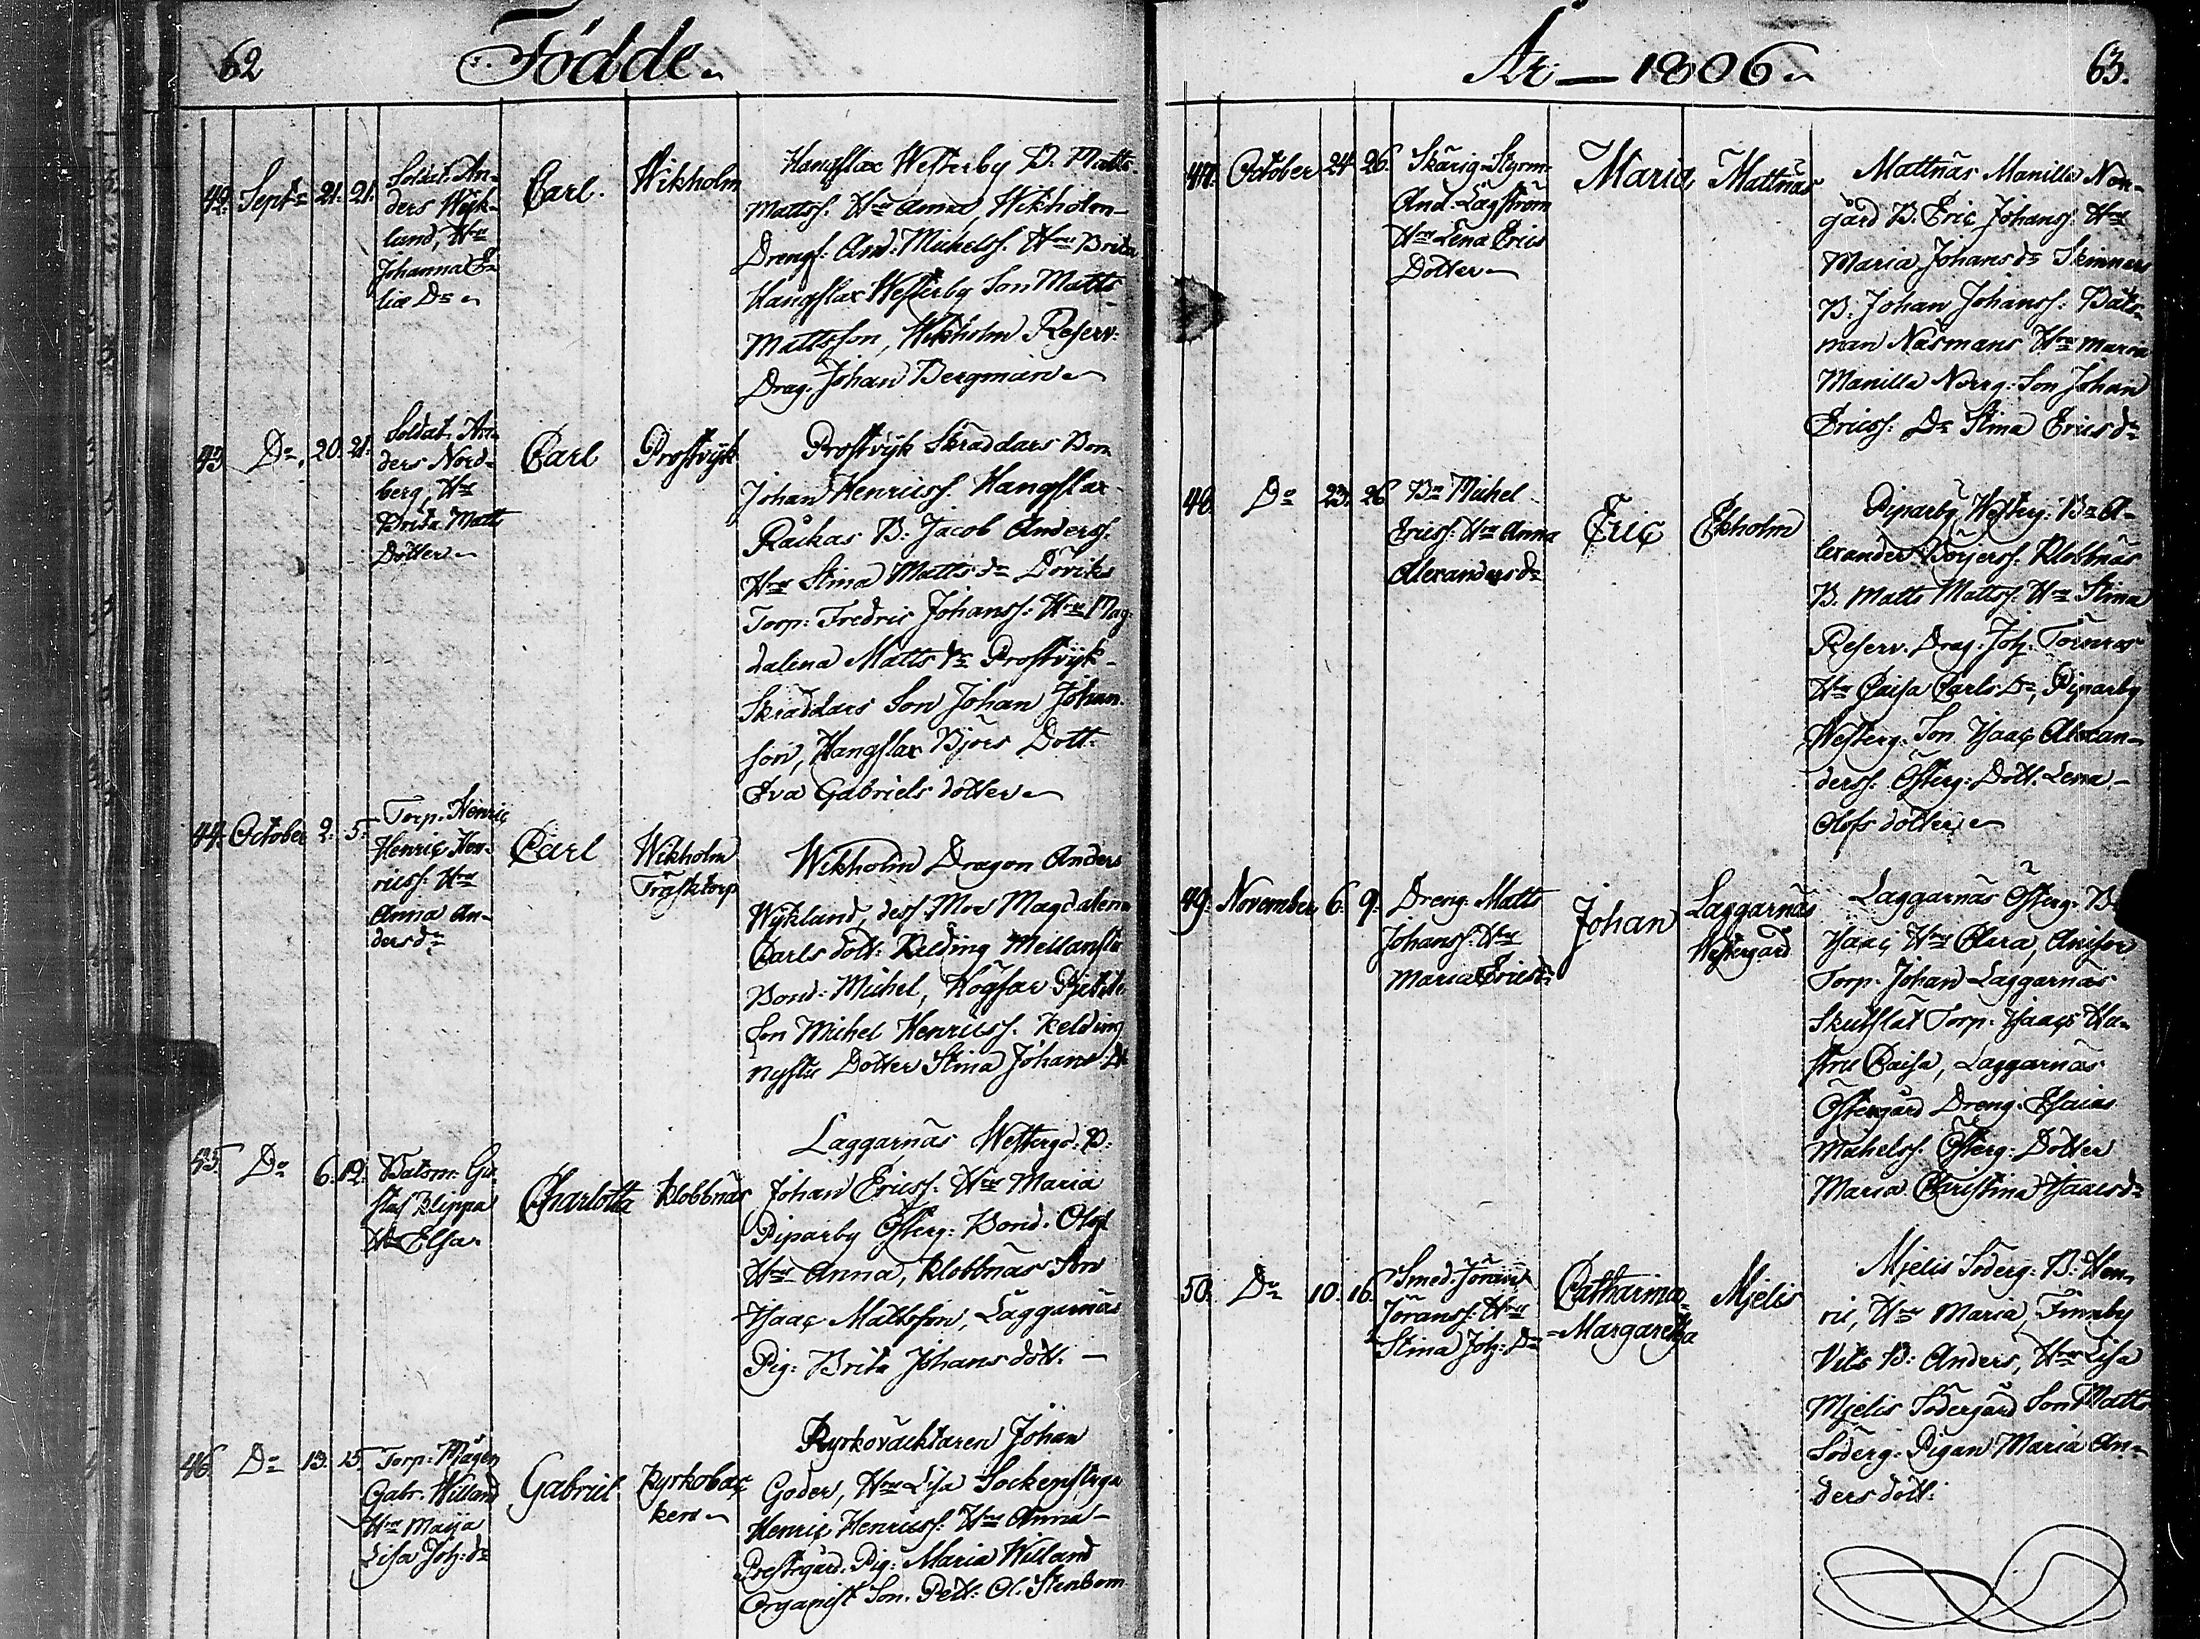 62
Födde
42. Septr 21. 21.
Soldat. An-
ders Wyk-
lund, Hru
Johanna E-
liæ Dr
Carl.
Wikholm
Hangslax Westerby B. Matts
Mattss. Hru Anna, Wikholm
Drengs. And: Michelss. Hru Brita
Hangslax Westerby Son Matts
Mattsson, Wikholm Reserv:
Drag. Johan Bergman
43. Do. 20. 21.
Soldat. An-
ders Nord-
berg, Hru
Brita Matts
Dotter
Carl
Prostvijk
Prostvijk Skräddars Bon
Johan Henricss. Hangslax
Räckas B. Jacob Anderss.
Hru Stina Matts dr
Torp: Fredric Johanss: Hru Mag
dalena Matts dr Prostvijk
Skräddars Son Johan Johan
son, Hangslax Björs Dott:
Eva Gabriels dotter
44. October 2. 5.
Torp. Henric
Henric Hen-
ricss. Hru
Anna An-
ders dr
Carl
Wikholm
Träsktorp
Wikholm Dragon Anders
Wykland, dess Mor Magdalena
Carls dott. Kelding Mellanstu
Bond: Michel,
Son Michel Henricss. Kelding
nystu Dotter Stina Johans Dr
45. Do 6. 12.
Batsm: Gu
staf Klippa
Hru Elsa.
Charlotta
Klobbnäs
Laggarnäs Westergd: B:
Johan Ericss. Hru Maria
Piparby Österg: Bond. Olof
Hru Anna, Klobbnäs Son
Isaac Mattsson, Laggarnäs
Pig: Brita Johans dott.
46. Do 13. 15.
Torp: Mågen
Gabr. Willand
Hru Maija
Lisa Joh: dr
Gabriel
Kyrkobac
ken
Kyrkoväcktaren Johan
Goder, Hru Lisa
Henric Henricss. Hru Anna
Prestgård. Pig: Maria Willand
Organist Son. Pett: Ol: Stenbom
År 1806
63.
47. October 24 26.
Skärig. Styrm.
And. Lågström
Hru Lena Erics
Dotter
Maria
Mattnäs
Mattnäs Manilla Nor-
gård B. Eric Johanss. Hru
Maria Johans dr Skinnars
B. Johan Johanss: Båts-
man Näsmans Hru Maria
Manilla Norrg: Son Johan
Ericss. Dr Stina Erics dr
48. Do 23. 26
Bn Michel
Ericss. Hru Anna
Alexanders dr
Eric
Ekholm
Piparby Westerg: Bn A-
lexander Börjerss. Klobbnäs
B. Matts Mattss. Hru Stina
Reserv. Drag. Joh. Törnros
Hru Caisa Carls Dr, Piparby
Westerg. Son Isaac Alexan-
derss. Österg: Dott. Lena
Olofs dotter
49. November 6. 9.
Dreng. Matts
Johanss. Hru
Maria Erics dr
Johan
Laggarnäs
Westergård
Laggarnäs Österg. B
Isaac Hru Clara,
Torp. Johan Laggarnäs
Skutslät Torp. Isaacs Hu-
stru Caisa, Laggarnäs
Östergård Dreng. Esaias
Michelss. Österg: Dotter
Maria Christina Isaacs dr
50. Do 10. 16.
Smed. Jöran
Jöranss. Hru
Stina Joh: Dr
Catharina
Margaretha
Mjelis
Mjelis Söderg: B: Hen-
ric, Hru Maria, Finnby
Nils B: Anders, Hru Lisa
Mjelis Södergård Son Matts
Söderg: Pigan Maria An-
ders dott.